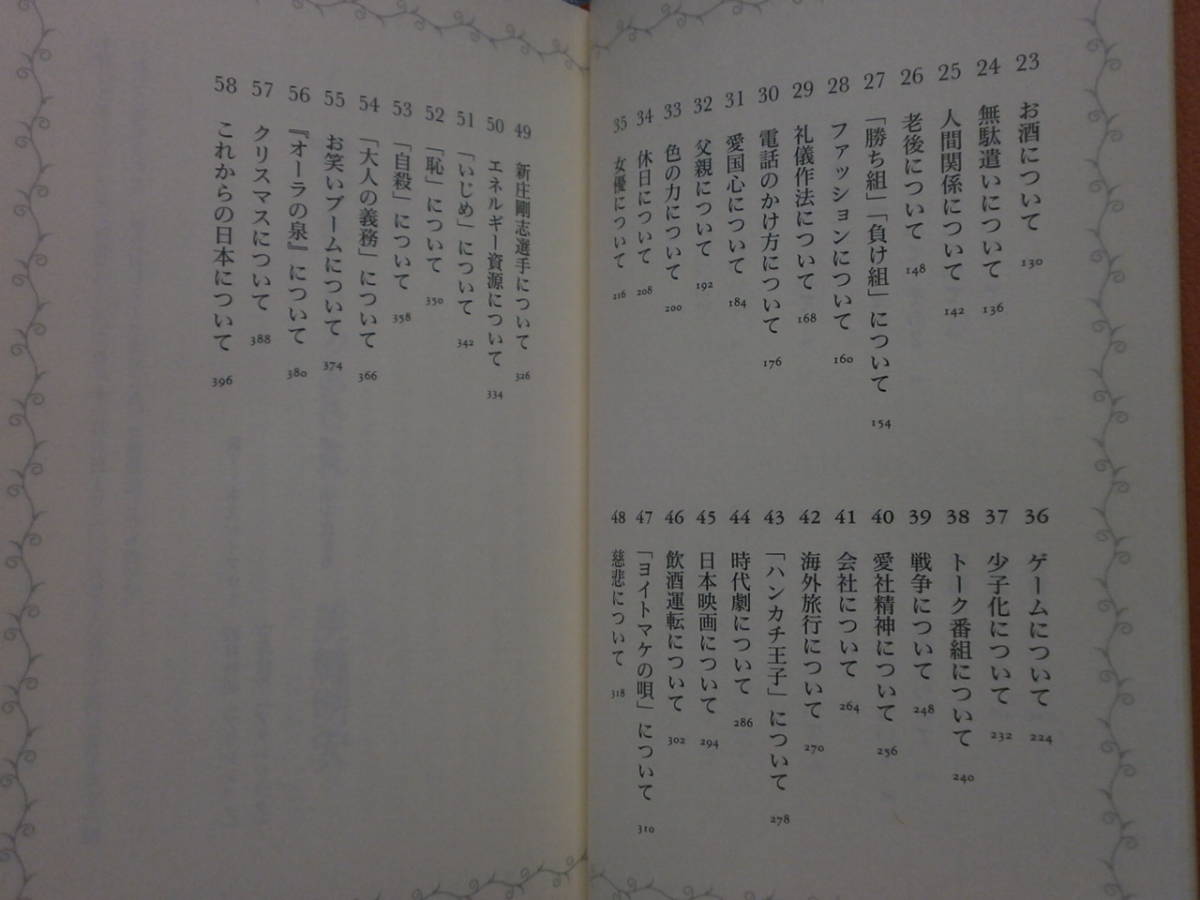 23 お酒について 130
24 無駄遣いについて 136
25 人間関係について 142
26 老後について 148
27 「勝ち組」「負け組」について 154
28 ファッションについて 160
29 礼儀作法について 168
30 電話のかけ方について 176
31 愛国心について 184
32 父親について 192
33 色の力について 200
34 休日について 208
35 女優について 216
36 ゲームについて 224
37 少子化について 232
38 トーク番組について 240
39 戦争について 248
40 愛社精神について 256
41 会社について 264
42 海外旅行について 270
43 「ハンカチ王子」について 278
44 時代劇について 286
45 日本映画について 294
46 飲酒運転について 302
47 「ヨイトマケの唄」について 310
48 慈悲について 318
49 新庄剛志選手について 326
50 エネルギー資源について 334
51 「いじめ」について 342
52 「恥」について 350
53 「自殺」について 358
54 「大人の義務」について 366
55 お笑いブームについて 374
56 『オーラの泉』について 380
57 クリスマスについて 388
58 これからの日本について 396